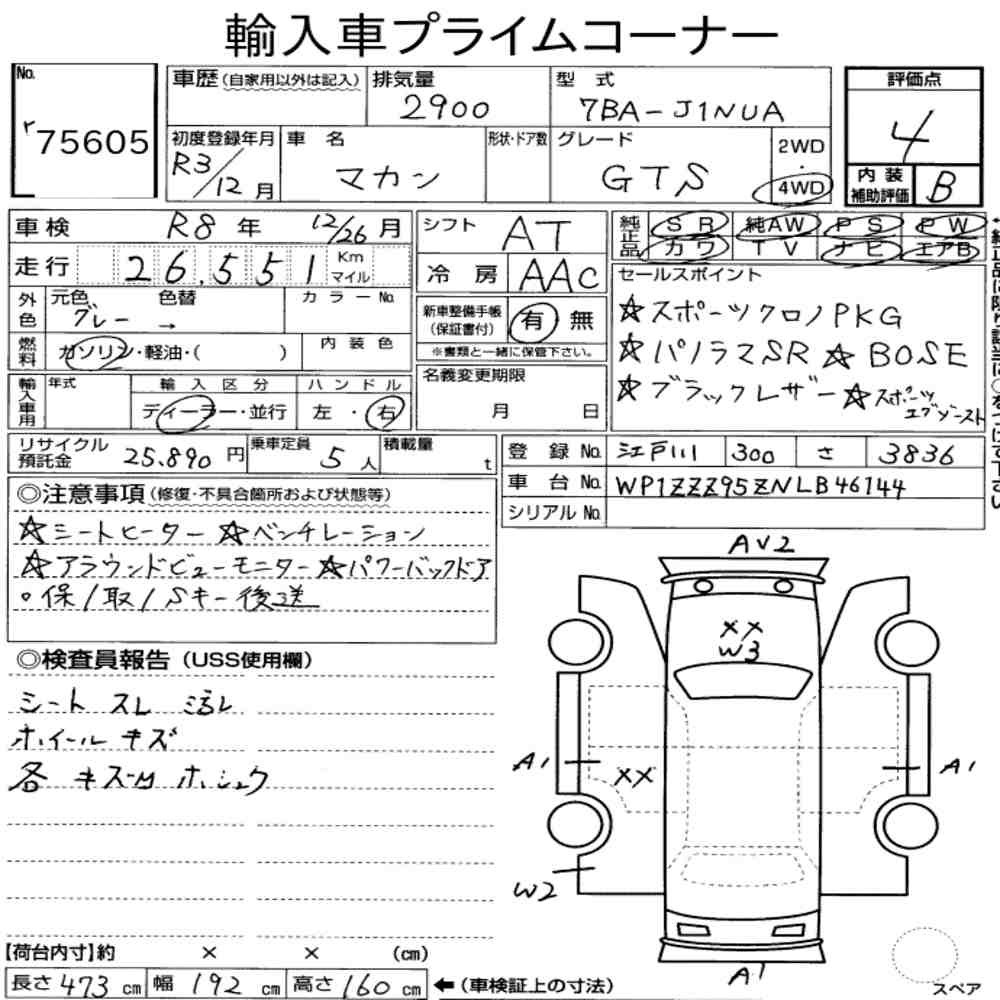 輸入車プライムコーナー
No.
r 75605
車歴 (自家用以外は記入)
排気量
2900
型式
7BA-J1NUA
評価点
4
初度登録年月
R3/12月
車名
マカン
形状・ドア数
グレード
GTS
2WD
・
4WD
内装
補助評価
B
車検 R8年 12/26月
走行 26,551 Km マイル
外色 元色 色替 カラーNo.
グレー →
燃料 ガソリン・軽油・( ) 内装色
輸入車用 年式 輸入区分 ハンドル
ディーラー・並行 左・右
シフト AT
冷房 AAC
新車整備手帳
(保証書付) 有 無
※書類と一緒に保管下さい。
名義変更期限
月 日
純正品 SR 純AW PS PW
カワ TV ナビ エアB
セールスポイント
☆スポーツクロノPKG
☆パノラマSR ☆BOSE
☆ブラックレザー ☆スポーツ
エグゾースト
リサイクル
預託金 25,890円
乗車定員 5人
積載量 t
登録No. 江戸川 300 さ 3836
車台No. WP1ZZZ95ZNLB46144
シリアルNo.
◎注意事項 (修復・不具合箇所および状態等)
☆シートヒーター ☆ベンチレーション
☆アラウンドビューモニター ☆パワーバックドア
○保/取/Sキー後送
◎検査員報告 (USS使用欄)
シート スレ 汚レ
ホイール キズ
各 キズ凹 ホシュウ
AV2
XX
W3
A1
XX
A1
W2
A1
スペア
【荷台内寸】約 × × (cm)
長さ 473 cm 幅 192 cm 高さ 160 cm ←(車検証上の寸法)